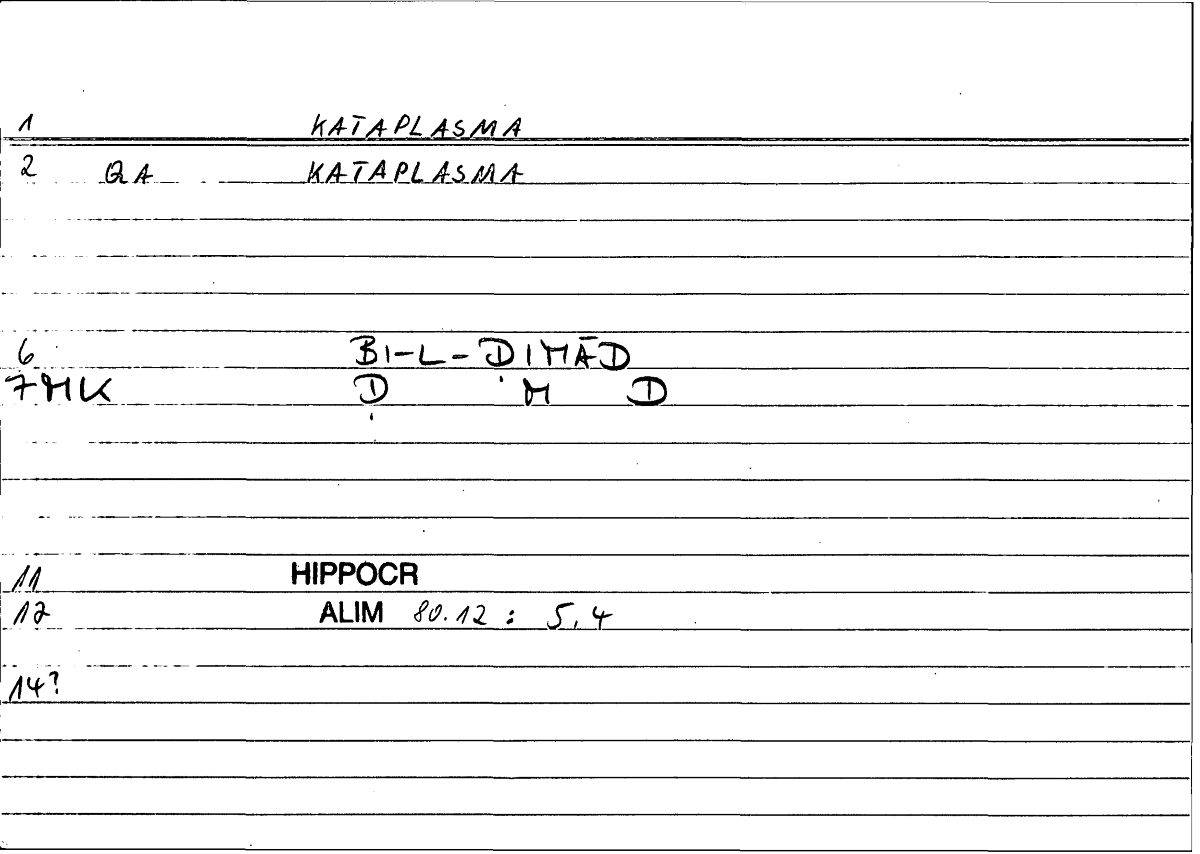 1 KATAPLASMA
2 QA KATAPLASMA
6 BI-L-ḌIMĀD
7 MK Ḍ M D
11 HIPPOCR
12 ALIM 80.12 : 5,4
14?